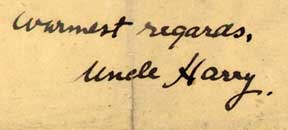 warmest regards,
Uncle Harry.